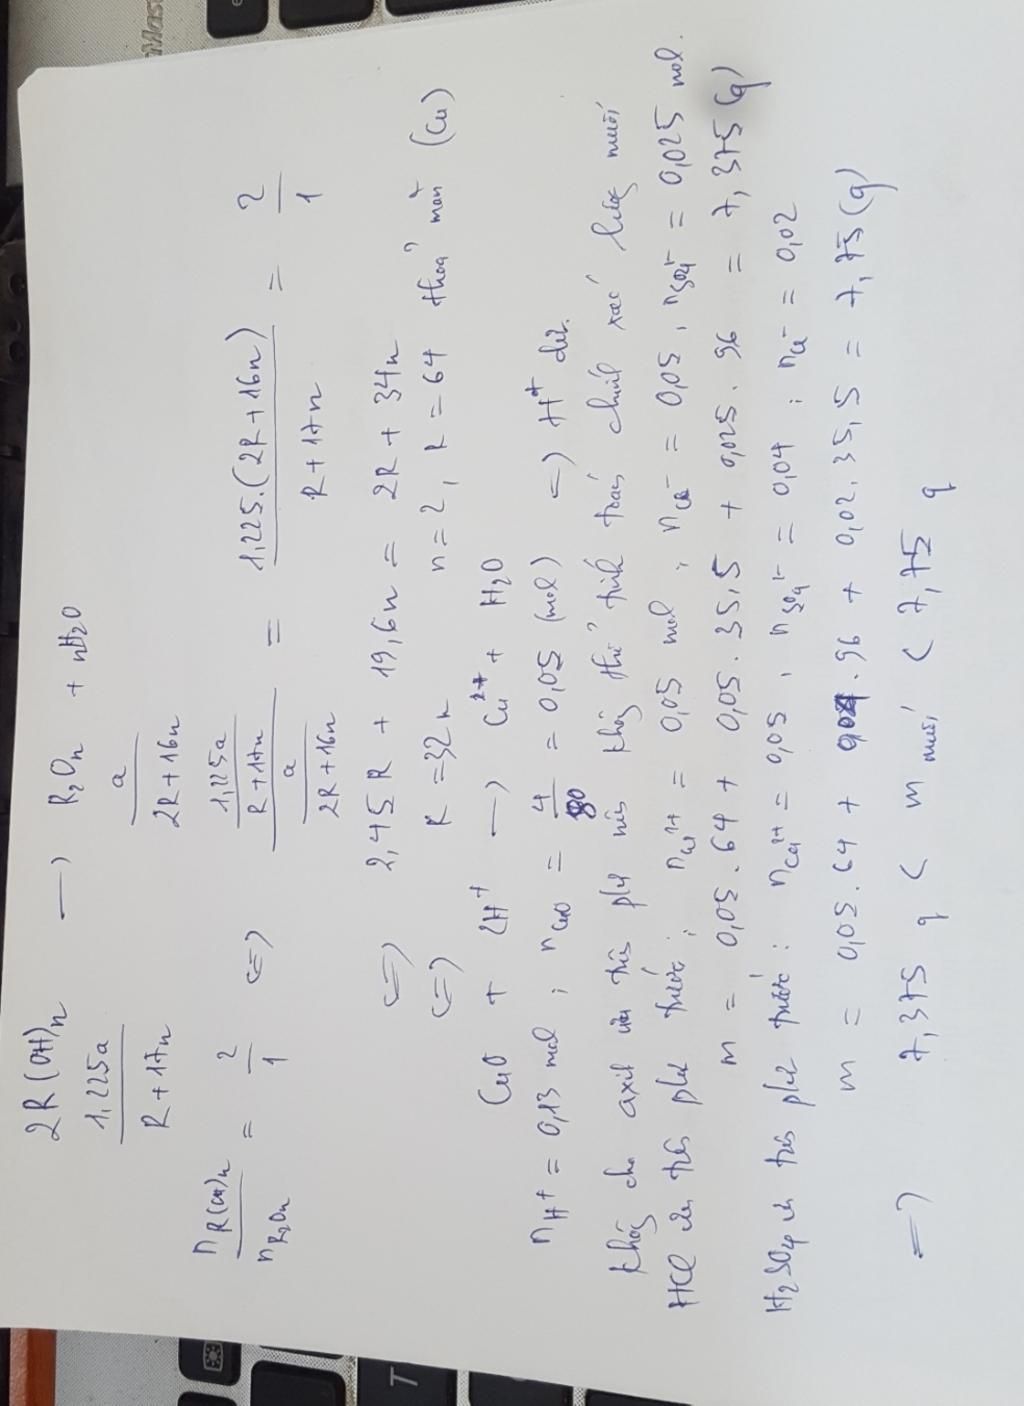 2R(OH)n → R2On + nH2O
1,225a / R+17n    a / 2R+16n
nR(OH)n / nR2On = 2/1 <=> (1,225a / R+17n) / (a / 2R+16n) = 1,225.(2R+16n) / R+17n = 2/1
<=> 2,45R + 19,6n = 2R + 34n
<=> R = 32n    n=2, R=64 thoả mãn (Cu)
CuO + 2H+ → Cu2+ + H2O
nH+ = 0,13 mol ; nCuO = 4/80 = 0,05 (mol) => H+ dư.
không cho axit ưu tiên pư nên không thể tính toán chính xác lượng muối
HCl ưu tiên pư trước: nCu2+ = 0,05 mol ; nCl- = 0,05 , nSO42- = 0,025 mol.
m = 0,05.64 + 0,05.35,5 + 0,025.96 = 7,375 (g)
H2SO4 ưt tiên pư trước: nCu2+ = 0,05 , nSO42- = 0,04 ; nCl- = 0,02
m = 0,05.64 + 0,04.96 + 0,02.35,5 = 7,75 (g)
=> 7,375 g < m muối < 7,75 g
T